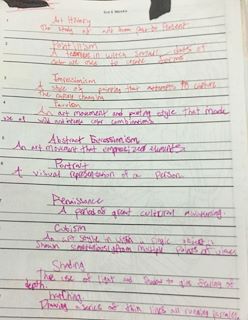 Art History
The study of art from past to Present
Pointillism
A technique in which small dots of
color are used to create forms
Impressionism
A style of painting that attempts to capture
the
Fauvism
An art movement and painting style that made
use of wild extreme color combinations
Abstract Expressionism
An art movement that emphasized elements
Portrait
A visual representation of a Person
Renaissance
A period of great cultural awakening.
Cubism
An art style in which a single object is
shown simultaneously from multiple points of views
Shading
The use of light and shadow to give feeling of
depth.
Hatching
Drawing a series of thin lines all running parallel